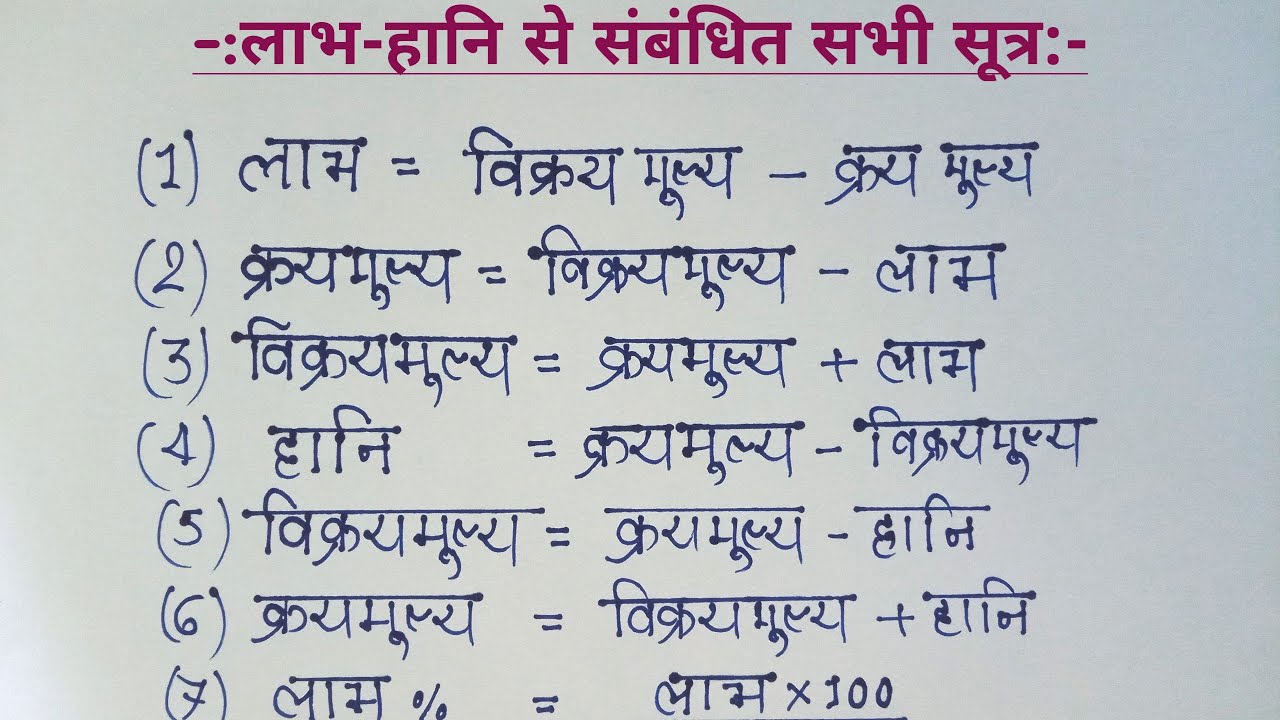 -:लाभ-हानि से संबंधित सभी सूत्र:-
(1) लाभ = विक्रय मूल्य - क्रय मूल्य
(2) क्रयमूल्य = विक्रयमूल्य - लाभ
(3) विक्रयमूल्य = क्रयमूल्य + लाभ
(4) हानि = क्रयमूल्य - विक्रयमूल्य
(5) विक्रयमूल्य = क्रयमूल्य - हानि
(6) क्रयमूल्य = विक्रयमूल्य + हानि
(7) लाभ % = लाभ × 100